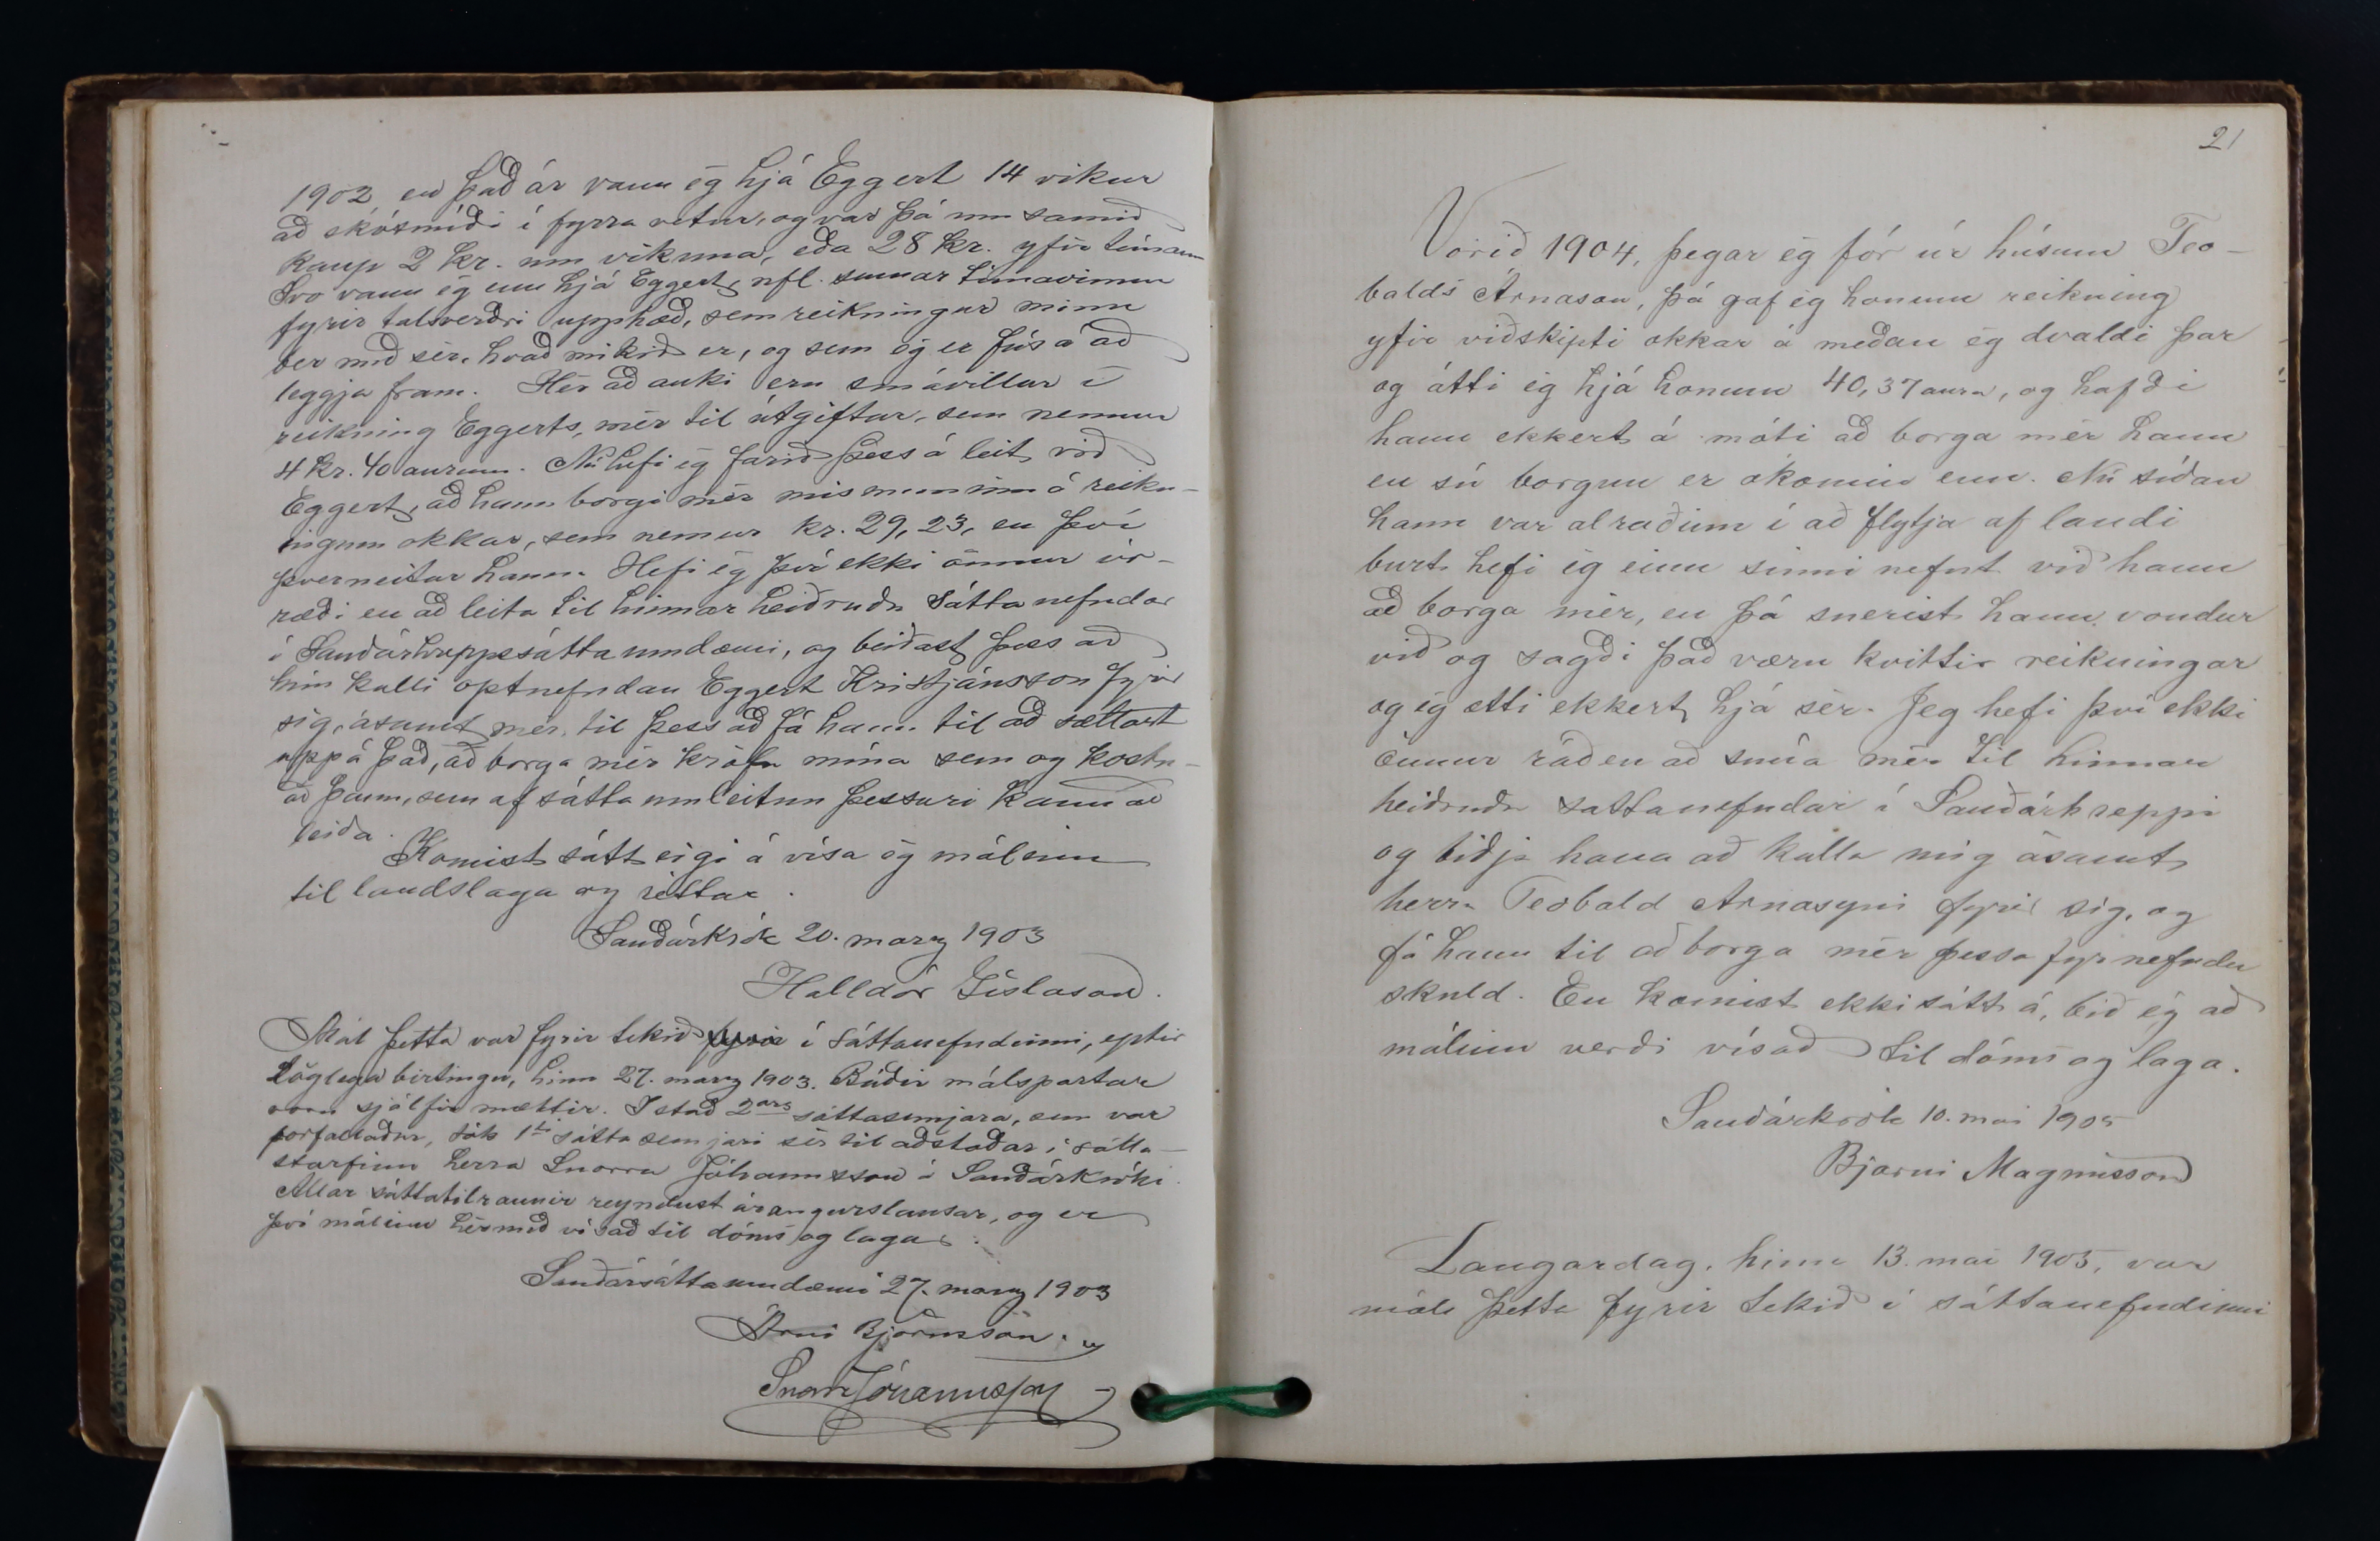 1902, en það ár vann ég hjá Eggert 14 vikur
að skósmíði í fyrra vetur, og var þá um samið
kaup 2 kr. um vikuna, eða 28 kr. yfir tímann
Svo vann ég enn hjá Eggert, nfl. sumar tímavinnu
fyrir talsverðri upphæð, sem reikningur minn
ber með sér, hvað mikið er, og sem ég er fús á að
leggja fram. Hér að auki eru smávillur í
reikning Eggerts, mér til útgiftar, sem nemur
4 kr. 40 aurum. Nú hefi ég farið þess á leit við
Eggert, að hann borgi mér mismuninn á reikn-
ingum okkar, sem nemur kr. 29,23, en því
þverneitar hann. Hefi ég því ekki önnur úr-
ræði en að leita til hinnar heiðruðu sáttanefndar
í Sauðárhreppssáttaumdæmi, og beiðast þess að
hún kalli optnefndan Eggert Kristjánsson fyrir
sig, ásamt mér, til þess að fá hann til að sættast
uppá það, að borga mér kröfu mína sem og kostn-
að þann, sem af sáttaumleitun þessari kann að
leiða.
Komist sátt eigi á vísa ég málinu
til landslaga og réttar.
Sauðárkrók 20. marz 1903
Halldór Gíslason.
Mál þetta var fyrir tekið fyrir í sáttanefndinni, eptir
löglega birtingu, hinn 27. marz 1903. Báðir málspartar
voru sjálfir mættir. I stað 2ars sáttasemjara, sem var
forfallaður, tók 1ti sáttasemjari sér til aðstoðar í sátta-
starfinu herra Snorra Jóhannsson á Sauðárkróki.
Allar sáttatilraunir reyndust árangurslausar, og er
því málinu hérmeð vísað til dóms og laga.
Sauðársáttaumdæmi 27. marz 1903
Árni Björnsson.
Snorri Jóhannsson
21
Vorið 1904, þegar ég fór úr húsum Teo-
balds Árnason, þá gaf ég honum reikning
yfir viðskipti okkar á meðan ég dvaldi þar
og átti ég hjá honum 40,37 aura, og hafði
hann ekkert á móti að borga mér hann
en sú borgun er ókomin enn. Nú síðan
hann var alraðinn í að flytja af landi
burt hefi ég einu sinni nefnt við hann
að borga mér, en þá snerist hann vondur
við og sagði það væru kvittir reikningar
og ég ætti ekkert hjá sér. Jeg hefi því ekki
önnur ráð en að snúa mér til hinnar
heiðruðu sattanefndar í Sauðárhreppi
og biðja hana að kalla mig ásamt
herra Teobald Arnasyni fyrir sig, og
fá hann til að borga mér þessa fyrnefndu
skuld. En komist ekki sátt á, bið ég að
málinu verði vísað til dóms og laga.
Sauðárkrók 10. mai 1905
Bjarni Magnússon
Laugardag, hinn 13. mai 1905, var
mál þetta fyrir tekið í sáttanefndinni